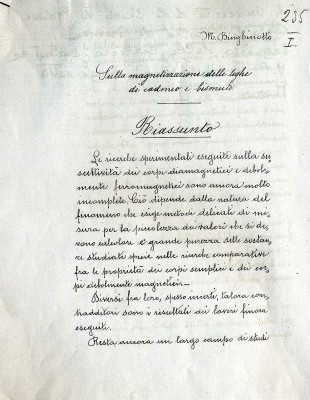 235
I.
M.
Sulla magnetizzazione delle leghe
di cadmio e bismuto
Riassunto
Le ricerche sperimentali eseguite sulla su-
scettività dei corpi diamagnetici e debol-
mente ferromagnetici sono ancora molto
incomplete. Ciò dipende dalla natura del
fenomeno che esige metodi delicati di mi-
sura per la piccolezza dei valori che si de-
vono calcolare e grande purezza delle sostan-
ze studiate specie nelle ricerche comparative
fra le proprietà dei corpi semplici e dei cor-
pi debolmente magnetici.—
Diversi fra loro, spesso incerti, talora con-
tradditori sono i risultati dei lavori finora
eseguiti.
Resta ancora un largo campo di studi